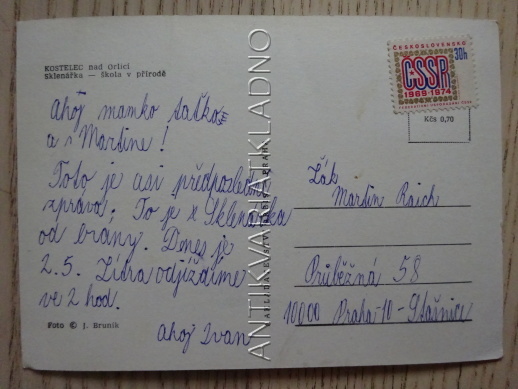 KOSTELEC nad Orlicí
Sklenářka — škola v přírodě
Ahoj mamko taťko
a Martine!
Toto je asi předposlední
zpráva. To je Sklenářka
od brany. Dnes je
2.5. Zítra odjíždíme
ve 2 hod.
Ahoj Ivan
Foto © J. Bruník
ANTIKVARIATKLADNO
ČESKOSLOVENSKO
30h
ČSSR
1969-1974
Kčs 0,70
Žák
Martin Raich
Průběžná 58
10000 Praha-10-Stašnice